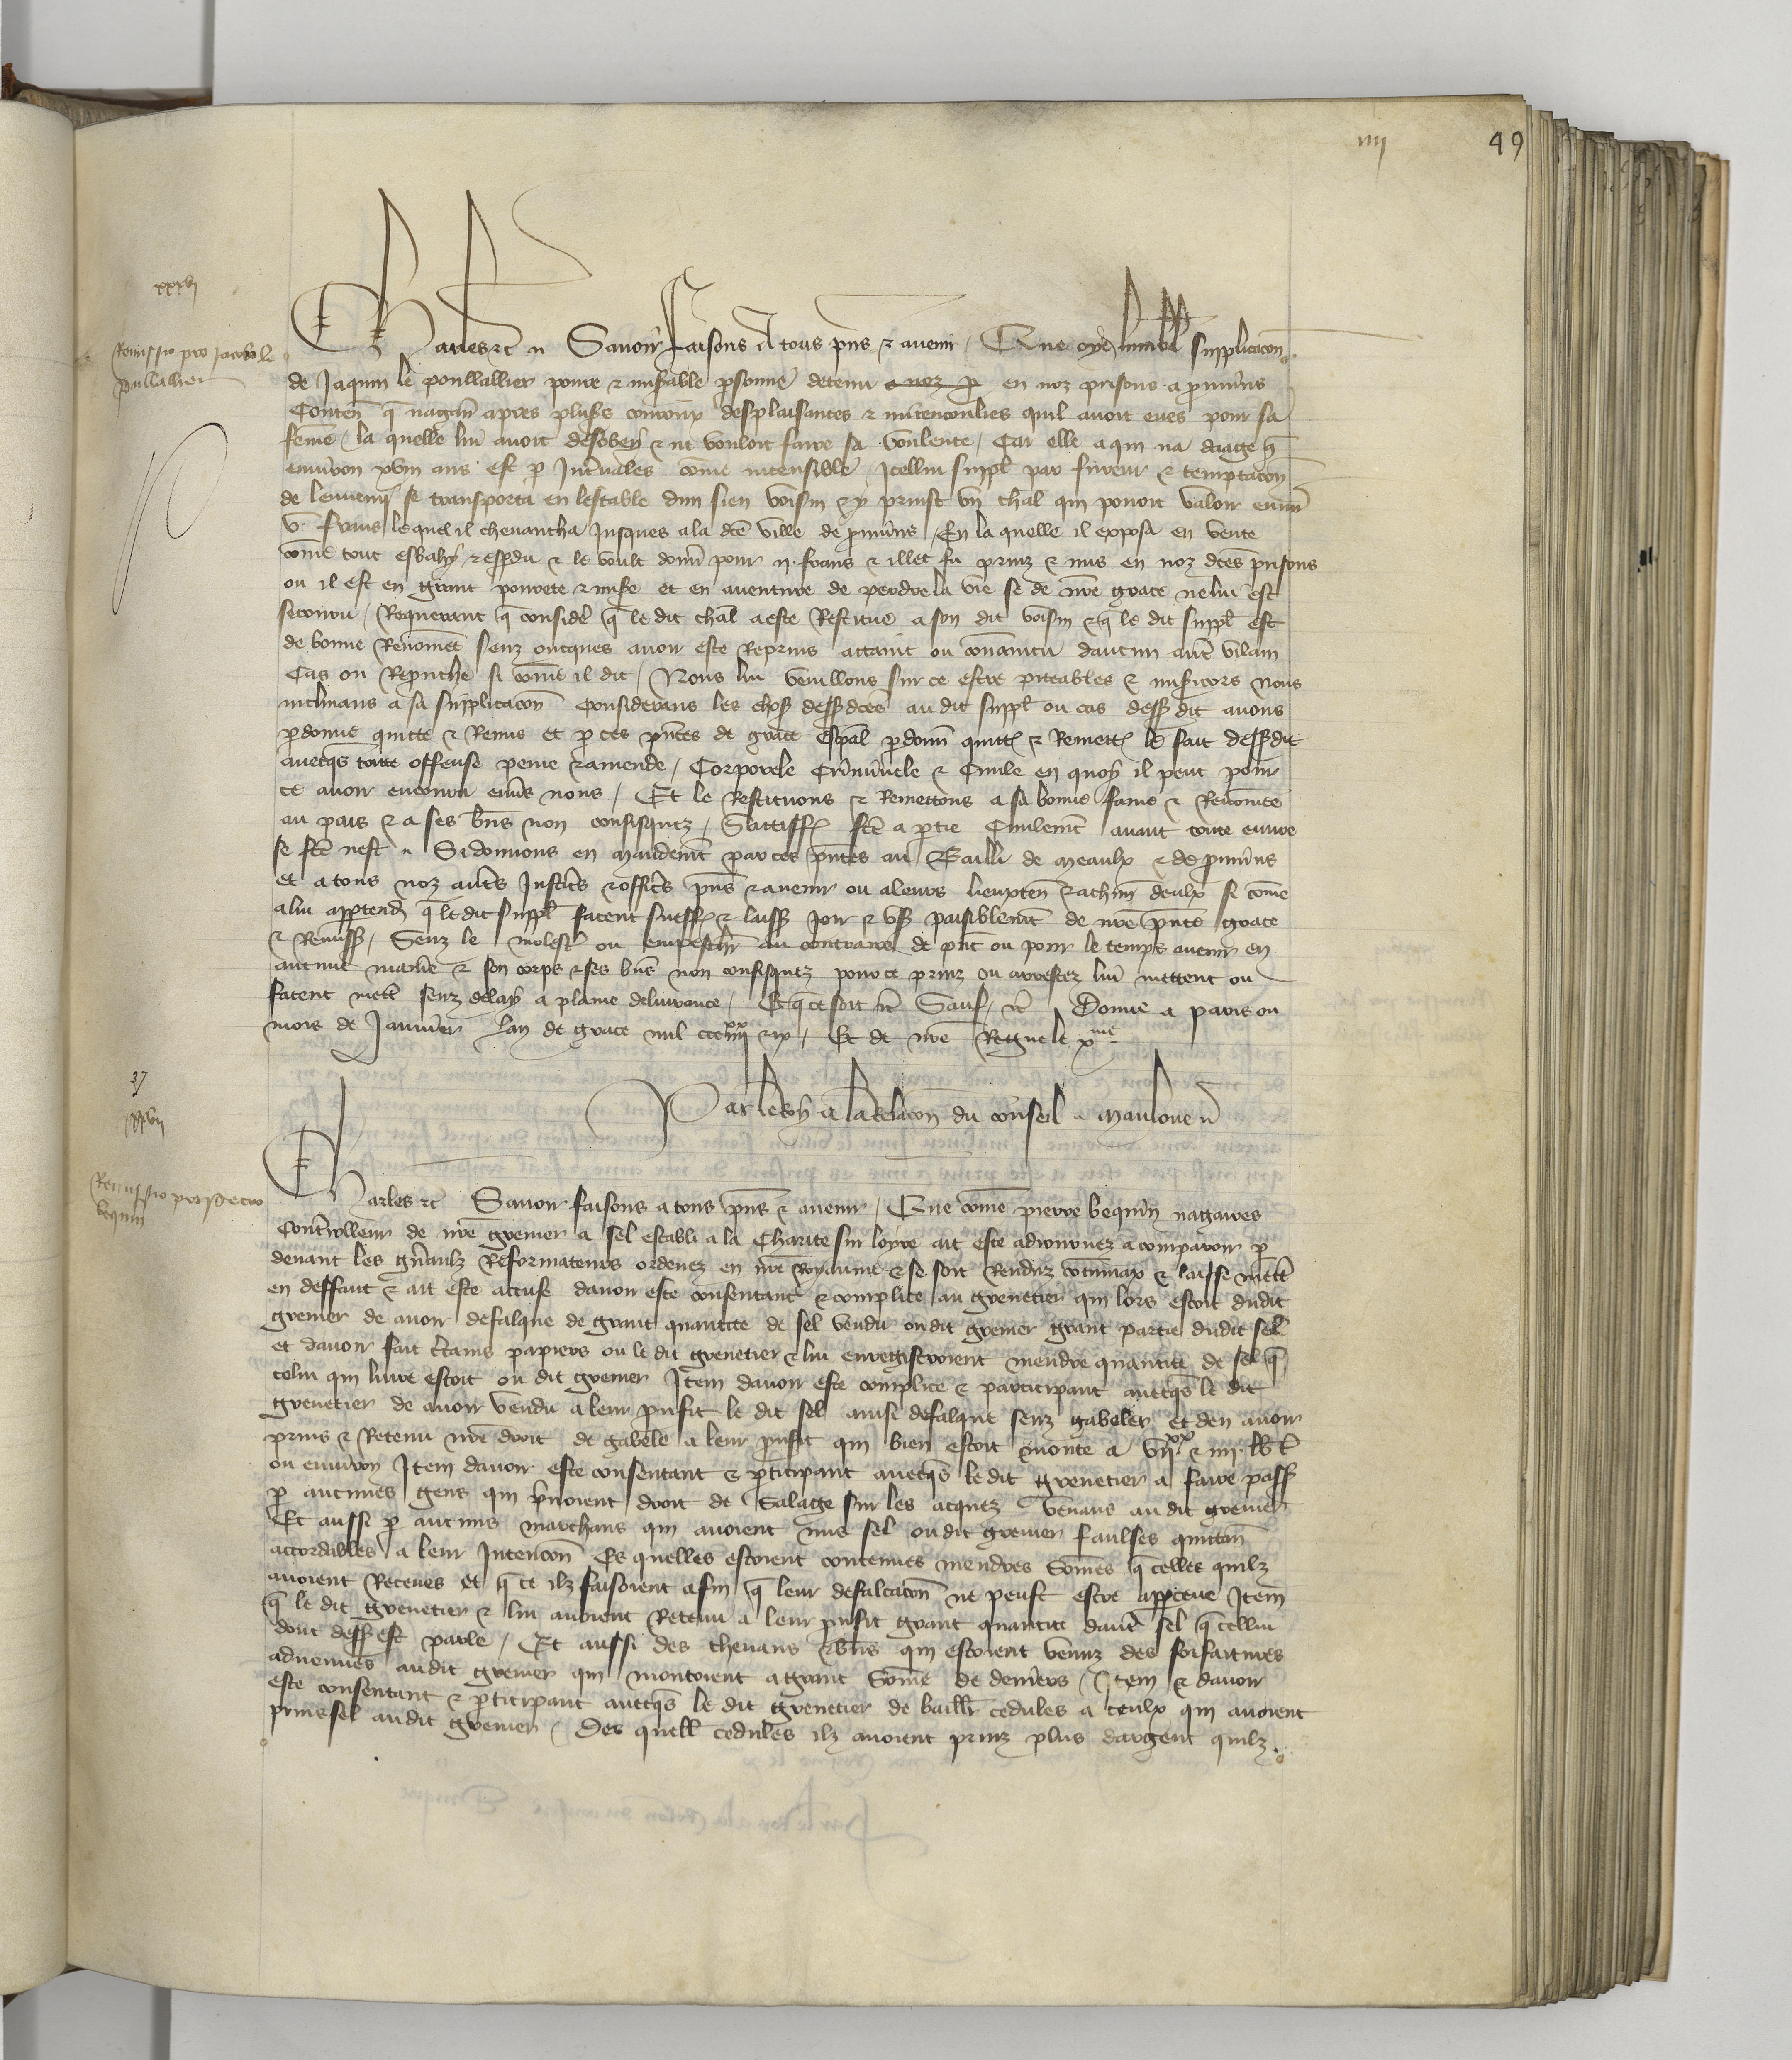 iiii 49
xxxvi
Remissio pro Jacobo le
pullallier
Charles etc. Savoir faisons a tous pns et avenir / Que oye lumble supplicacon
de Jaquin le poullallier povre et misable psonne detenu a noz p en noz prisons a prouvins
Conten q nagaires apres pluss courroux desplaisances et merencoulies quil avoit eues pour sa
feme / la quelle lui avoit desobey et ne vouloit faire sa voulente / Car elle a qui na daage q
environ xviii ans est p Intvales come incensible / Icellui suppl par fureur et temptacon
de lennemi se transporta en lestable dun sien voisin et y prinst un chal qui povoit valoir envir
v. frans le quel il chevaucha Jusques a la dce ville de prouvins / En la quelle il exposa en vente
come tout esbahy et espdu et le voult donn pour ii. frans et illec fu prinz et mis en noz dces prisons
ou il est en grant povrete et mise et en aventure de perdre la vie se de nre grace ne lui est
secouru / Requerant q consider q le dit chal a este Restitue a son dit voisin et q le dit suppl est
de bonne Renomee senz oncques avoir este Reprins attaint ou convaincu daucun autre vilain
Cas ou Reprouche si come il dit / Nous lui vueillons sur ce estre piteables et misicors Nous
inclinans a sa supplicacon Considerans les choses dessdces au dit suppl ou cas dess dit avons
pdonne quitte et Remis et p ces pntes de grace espal pdonn quitt et Remett le fait dessdit
avecqs toute offense peine et amende / Corporele Criminele et Civile en quoy il peut pour
ce avoir encouru envs nous / Et le Restituons et Remettons a sa bonne fame et Renomee
au pais et a ses bns non confisquez / Sattiff fce a ptie Civilemt avant toute euvre
se fce nest Si donnons en mandemt par ces pntes au Bailli de meaulx et de prouvins
et a tous noz autres Justics et offics pns et avenir ou a leurs lieuxten et a chun deulx si come
a lui apptendr q le dit suppl facent sueff et laiss Joir et us paisiblemt de nre pnte grace
et Remiss / Senz le molest ou empeschr au contraire de pnt ou pour le temps avenir en
aucune manie et son corps et ses bns non confisquez pour ce prinz ou arrestez lui mettent ou
facent mett senz delay a plaine delivrance / Et q ce soit etc Sauf etc Donne a paris ou
mois de Janvier lan de grace mil ccc iiiixx et ix / Et de nre Regne le xme
Par le Roy a la relacon du conseil Mauloue
37
xxxvii
Remissio pro petro
bequin
Charles etc Savoir faisons a tous pns et avenir / Que come pierre bequin nagaires
Controlleur de nre grenier a sel establi a la Charite sur loyre ait este adiournez a comparoir p
devant les gnaulx Reformateurs ordenez en nre Royaume et se soit Renduz contumax et laisse mett
en deffaut et ait este accuse davoir este consentant et complice au grenetier qui lors estoit dudit
grenier de avoir defalque de grant quantite de sel vendu ou dit grenier grant partie dudit sel
et davoir fait ctains papiers ou le dit grenetier et lui enregistroient mendre quantite de sel q
celui qui livre estoit ou dit grenier Item davoir este complice et participant avecqs le dit
grenetier de avoir vendu a leur prufit le dit sel ainsi defalque senz gabeler et den avoir
prins et Retenu nre droit de gabele a leur prufit qui bien estoit monte a viixx et iiii. lb t
ou environ Item davoir este consentant et pticipant avecqs le dit grenetier a faire pass
p aucunes gens qui prnoient droit de Salage sur les acquez venans au dit grenier
Et aussi p aucuns marchans qui avoient mis sel ou dit grenier faulses quittan
accordables a leur Intencon Es quelles estoient contenues mendres Somes q celles quilz
avoient Receues et q ce ilz faisoient afin q leur defalcacon ne peust estre appceue Item
q le dit grenetier et lui avoient Retenu a leur prufit grant quantite daut sel q cellui
dont dess est parle / Et aussi des chevaux et bns qui estoient venuz des forfaitures
advenues audit grenier qui montoient a grant Some de deniers / Item et davoir
este consentant et pticipant avecqs le dit grenetier de baillr cedules a ceulx qui avoient
prins sel audit grenier / Des quell cedules ilz avoient prinz plus dargent quilz